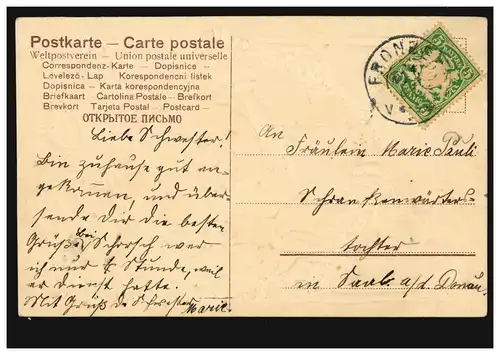 Postkarte – Carte postale
Weltpostverein – Union postale universelle
Correspondenz-Karte – Dopisnice
Levelező-Lap – Korespondencni listek
Dopisnica – Karta korespondencyjna
Briefkaart – Cartolina Postale – Brefkort
Brevkort – Tarjeta Postal – Postcard –
ОТКРЫТОЕ ПИСЬМО
Liebe Schwester!
Bin zuhause gut an-
gekommen, und über-
sende Dir die besten
Grüße bei Schorsch war
ich nur ½ Stunde, weil
er Dienst hatte.
Mit Gruß d. Schwester
Marie.
FRONT
5
5
An
Fräulein Marie Pauli
Schrankenwärters-
tochter
in Saal a/d. Donau.